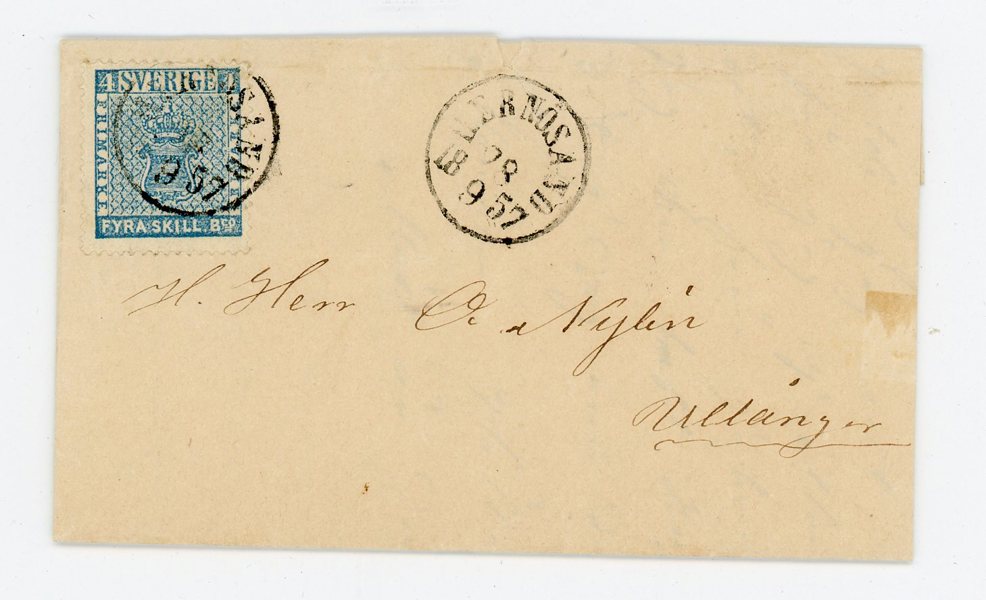 4 SVERIGE 4
FRIMÄRKE
FYRA SKILL. Bco.
HERNÖSAND
28
9
1857
H. Herr O. Nylin
Ullånger